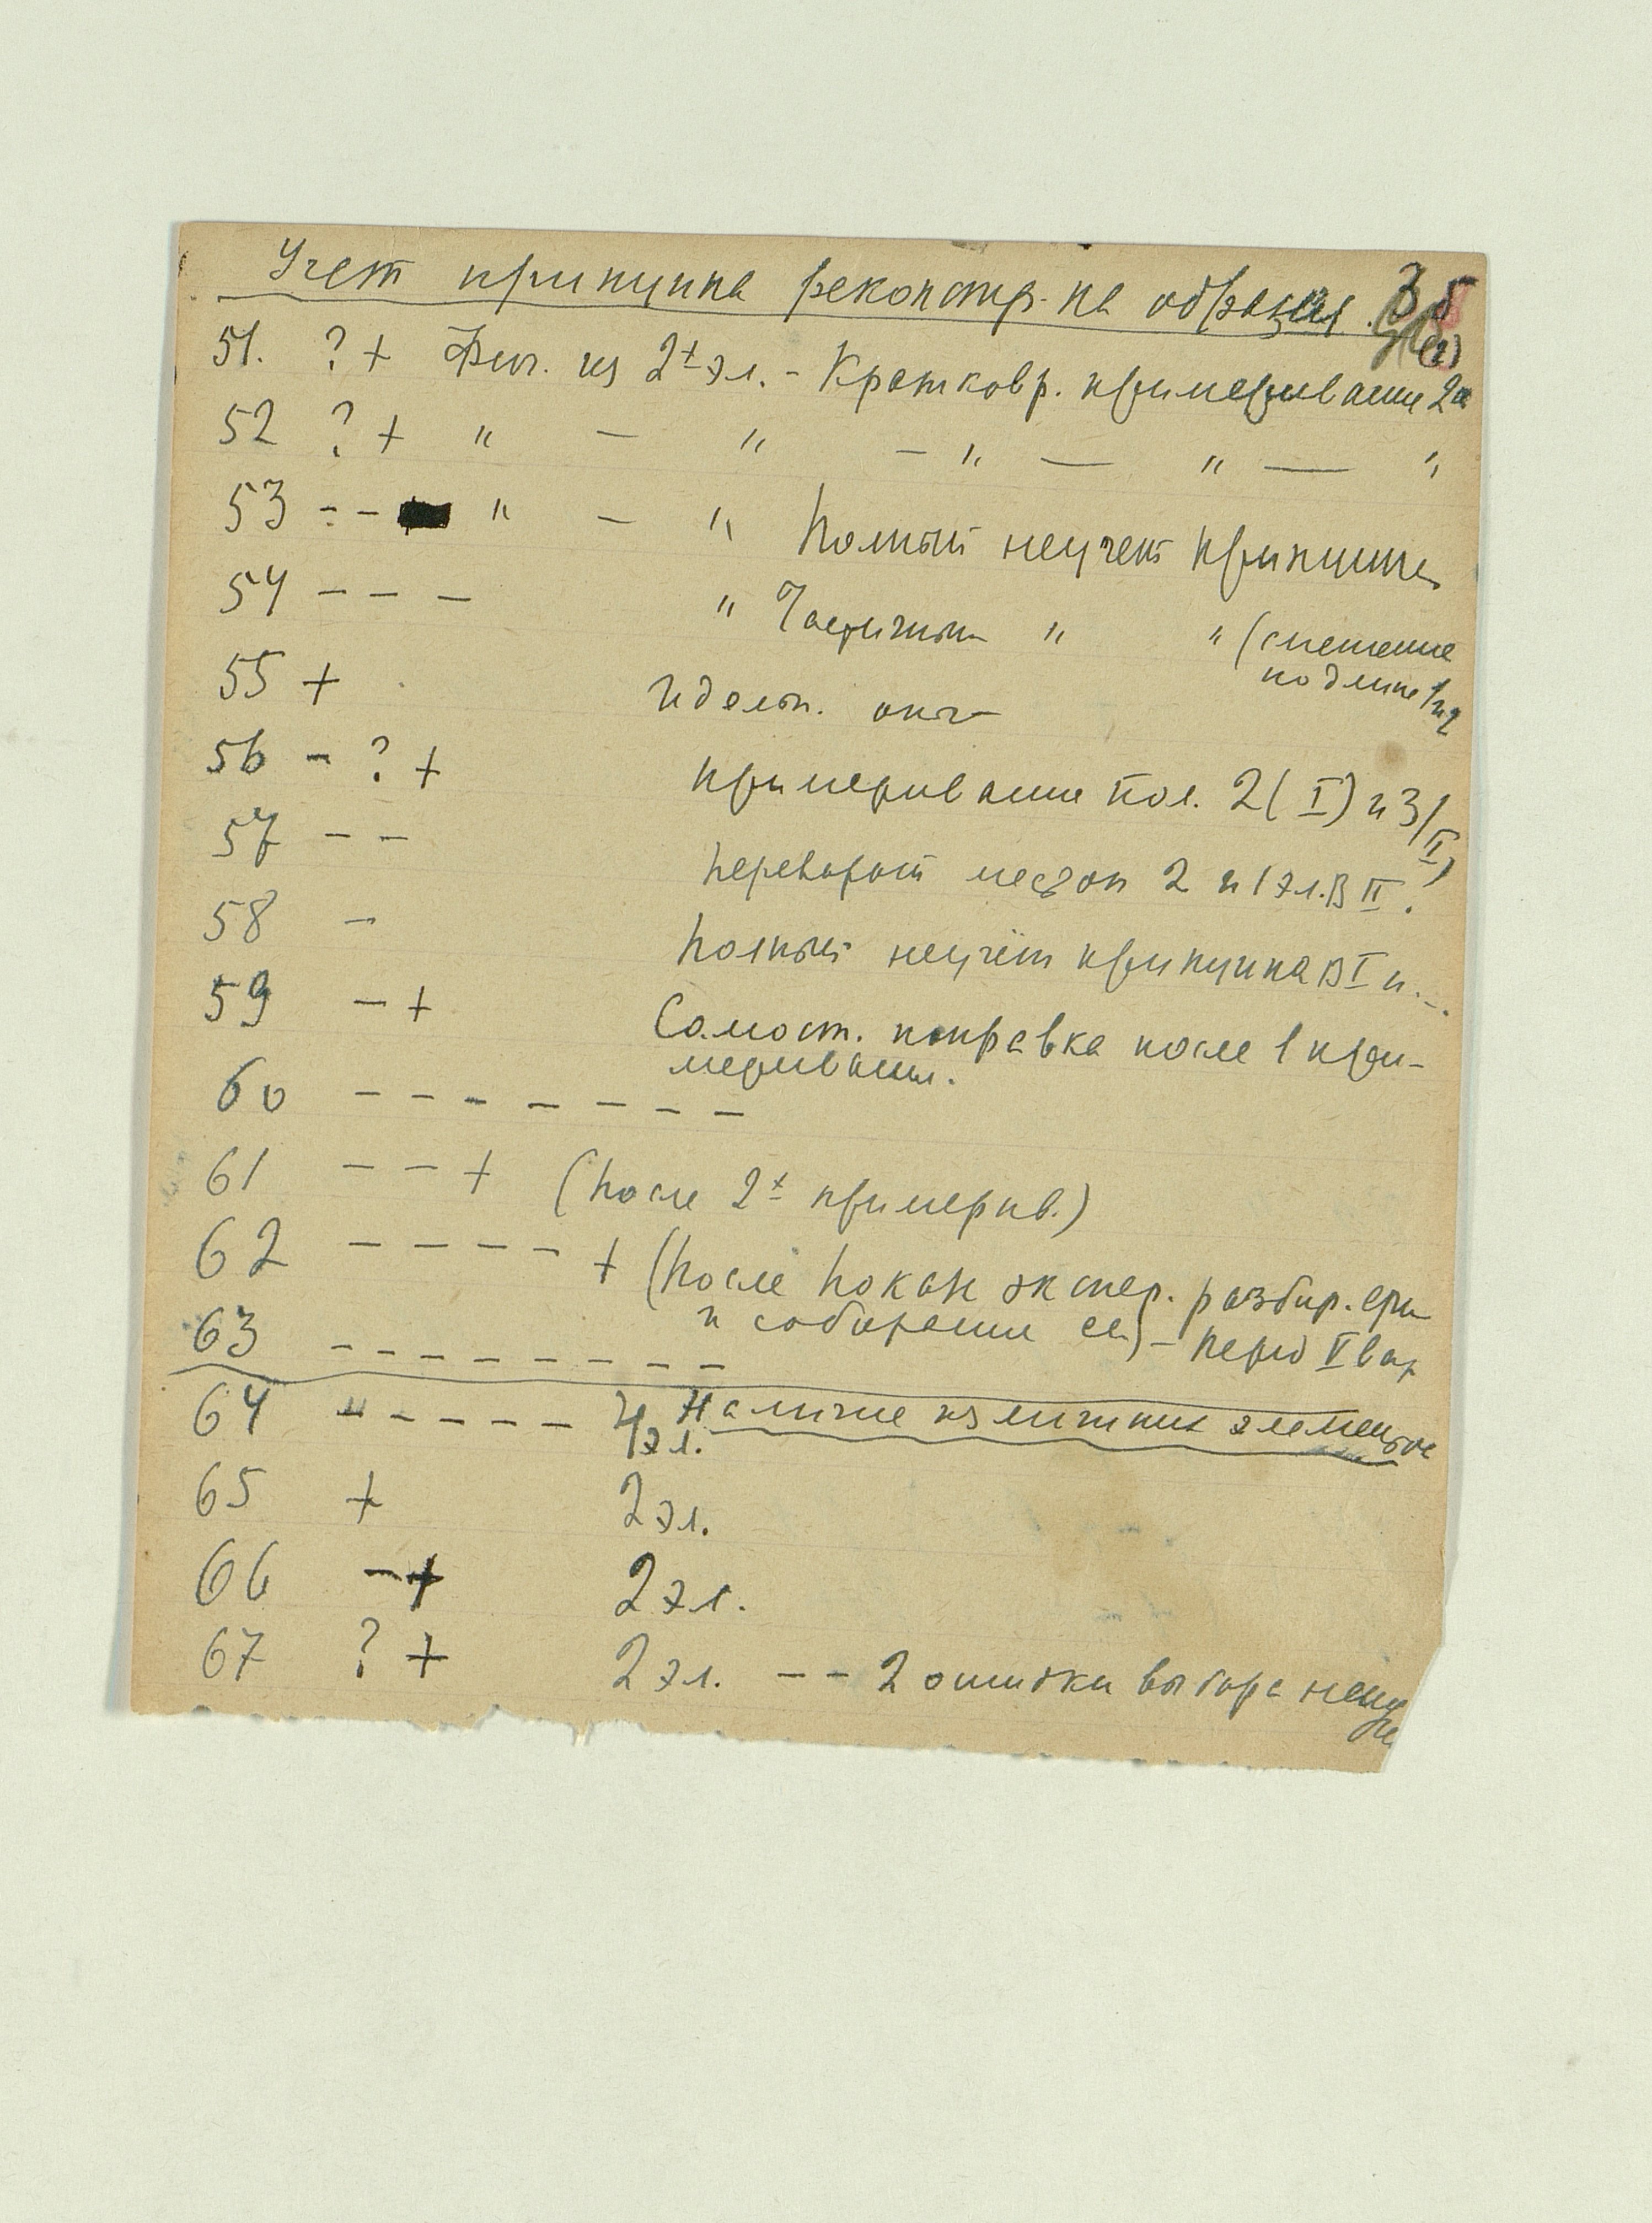 Учет принципа реконстр. на образца. 35
51. ? + Фиг. из 2х эл. - Кратковр. примеривание 2х
52 ? + " — " — " — " — "
53 - - " — " Полный неучет принципа
54 - - - " Частичный " " (смешение
по длине
55 + Идельн.
56 - ? + примеривание пол. 2 (I) и 3 (II)
57 - - Переворот местоп 2 и 1 эл. в II.
58 - Полный неучёт принципа в I и
59 - + Самост. поправка после 1 при-
меривания.
60 - - - - - - -
61 - - + (После 2х примерив.)
62 - - - - + (После показ экспер. разбир.
и собирании ее) - перед V вар
63 - - - - - - - -
64 - - - - - 4 эл. Наличие излишних элементов
65 + 2 эл.
66 - + 2 эл.
67 ? + 2 эл. - - 2 ошибки выбора